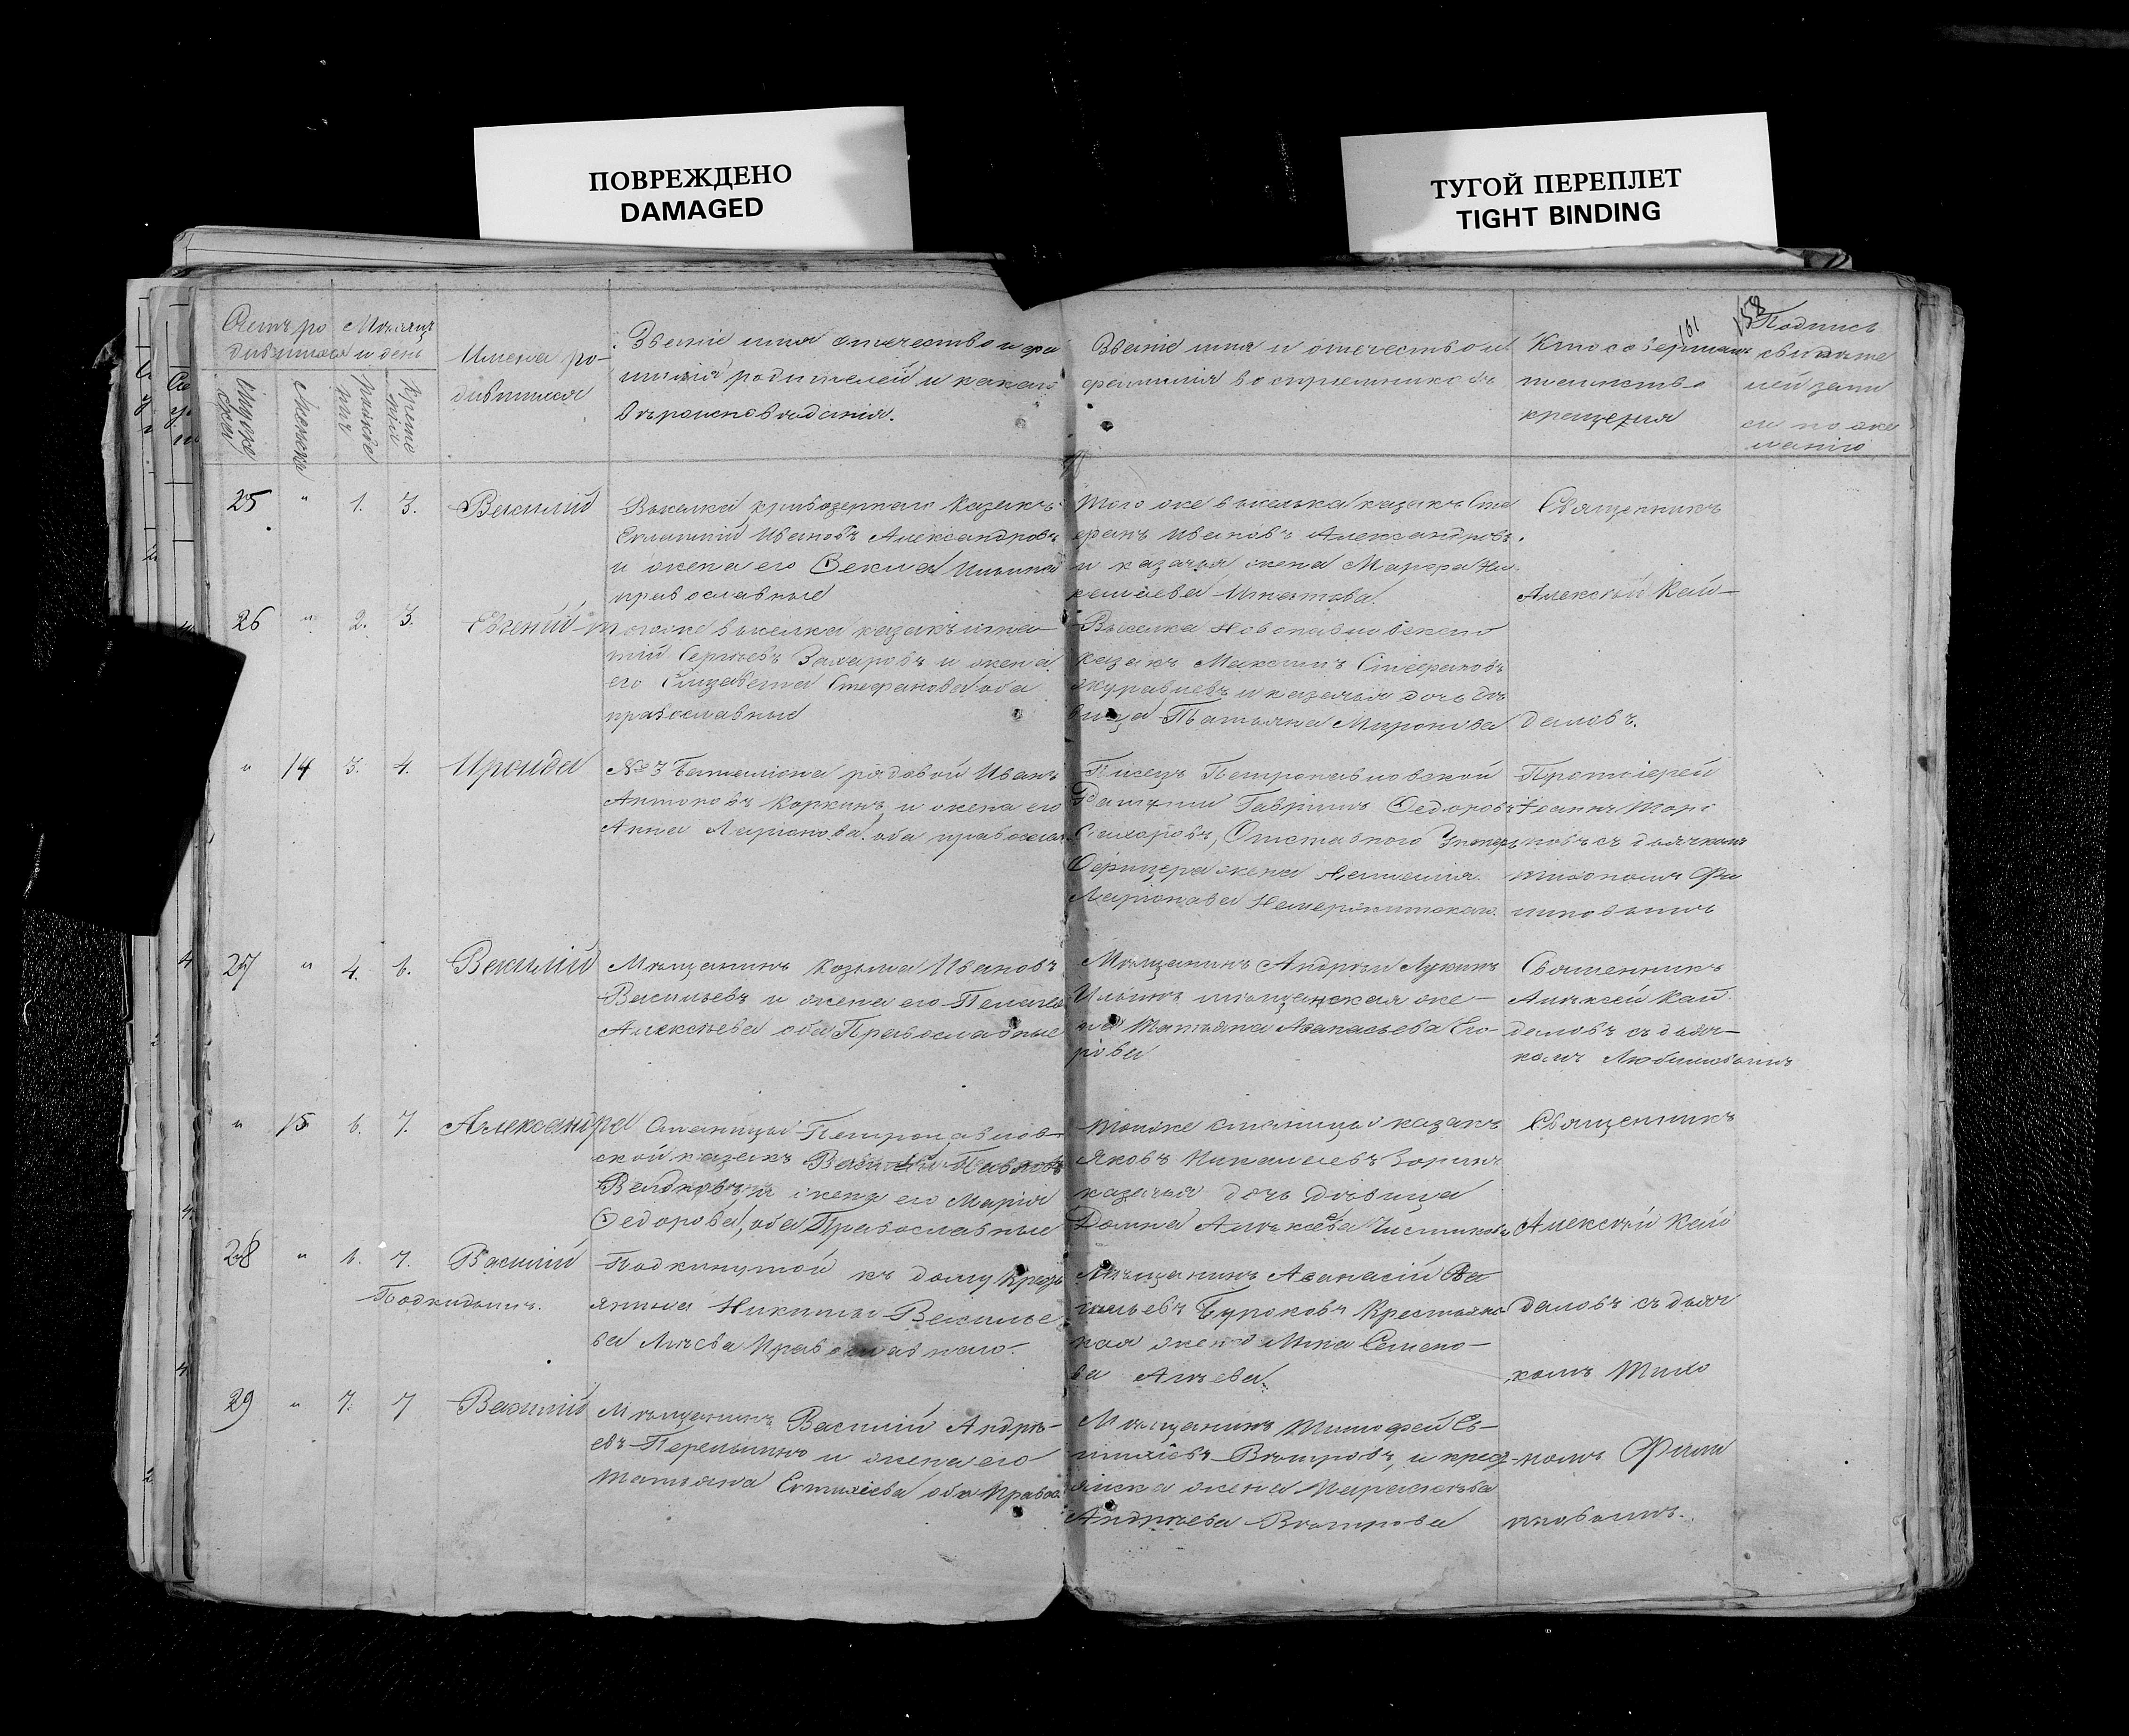 ПОВРЕЖДЕНО
DAMAGED
ТУГОЙ ПЕРЕПЛЕТ
TIGHT BINDING
Счетъ ро
дившихся
Мѣсяцъ
и день
Мужеска
Женска
рожде
нія
креще
нія
Имена ро-
дившихся
Званіе имя отечество и фа
милія родителей и какого
вѣроисповѣданія.
Званіе имя и отечество и
фамилія воспріемниковъ
Кто совершалъ
таинство
крещенія
161
158
Подпись
свидѣте
лей запи
си по же
ланію
25 " 1. 3. Василій
Выселка Кривозернаго казакъ
Евлампій Ивановъ Александровъ
и жена его Ѳекла Ильина
православные
Того же выселка казакъ Сте
фанъ Ивановъ Александровъ.
и казачья жена Марфа Ни
Игнатова.
Священникъ
Алексѣй Кай-
26 " 2. 3. Евгеній
Тогоже выселка казакъ
Сергѣевъ Захаровъ и жена
его Елизавета Стефанова оба
православные
Выселка Новопавловскаго
казакъ Максимъ Стефановъ
Журавлевъ и казачья дочь дѣ
вица Татьяна Миронова
даловъ.
" 14 3. 4. Ираида
№ 3 баталіона рядовой Иванъ
Антоновъ Коркинъ и жена его
Анна Ларіонова оба православ.
Писецъ Петропавловской
Гавріилъ Ѳедоровъ
Сахаровъ, Отставного Унтеръ
Офицера жена
Ларіонова
Протоіерей
Іоаннъ
новъ съ дьячкомъ
Тихономъ Фи
липовымъ
27 " 4. 6. Василій
Мѣщанинъ Козьма Ивановъ
Васильевъ и жена его Пелагея
Алексѣева оба Православные
Мѣщанинъ Андрей Лукинъ
Ильинъ мѣщанская же-
на Татьяна Аѳанасьева Его-
рова
Священникъ
Алексѣй Кай
даловъ съ дьяч-
комъ Любимовымъ
" 15 6. 7. Александра
Станицы Петропавлов-
ской казакъ Василій Павловъ
и жена его Марія
Ѳедорова, оба Православные
Тойже станицы казакъ
Яковъ Михайловъ Зоринъ
казачья дочь дѣвица
Домна Алексѣева Чистякова
Священникъ
Алексѣй Кай
28 " 6. 7. Василій
Подкидышъ.
Подкинутой къ дому Крест
янина Никиты Василье
ва Православнаго.
Мѣщанинъ Аѳанасій Ва
сильевъ Бурковъ Крестьян
ская жена Анна Семено-
ва
даловъ съ дьяч
комъ Тихо
29 " 7. 7 Василій
Мѣщанинъ Василій Андрѣ-
евъ и жена его
Татьяна Евтихіева оба Правос.
Мѣщанинъ Тимофей Ев-
тихіевъ Вѣтровъ, и крест
янска жена Параскева
Андреева Вѣтрова
номъ Фили
повымъ.